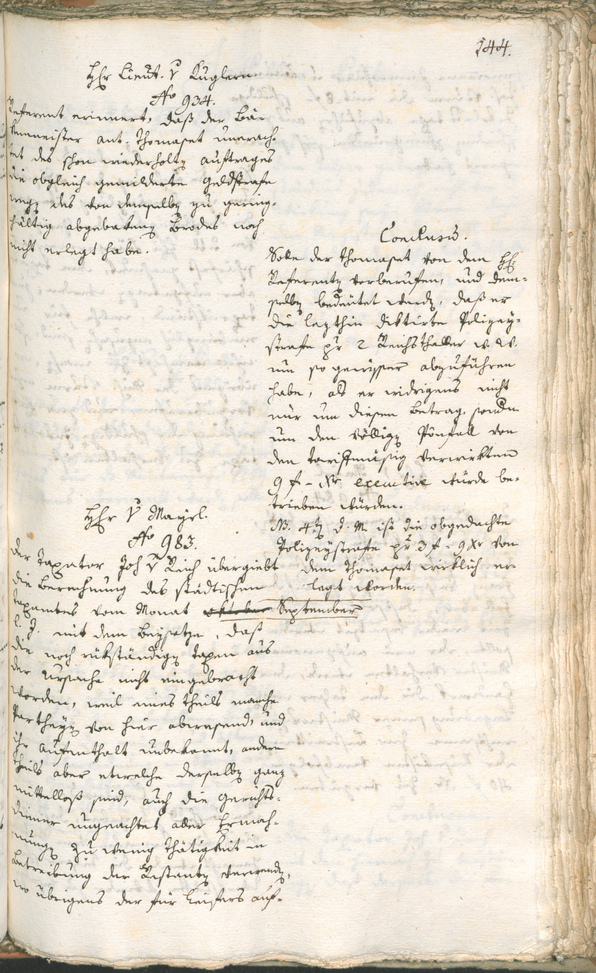 144.
Hr Lieut. v Kuglern
No 934.
Referent erinnert, daß der Bä-
kenmeister Ant. Thomaset unerach-
tet des schon wiederholten Auftrages
die obgleich gemilderte Geldstrafe
wegen des von demselben zu gering-
hältig abgebatenen Brodes noch
nicht erlegt habe.
Conclusum.
Solle der Thomaset von dem HH
Referenten vorberufen, und dem-
selben bedeutet werden, daß er
die lezthin diktirte Polizey-
strafe pr 2 Reichsthaller W. W.
um so gewisser abzuführen
habe, als er widrigens nicht
nur um diesen Betrag, sondern
um den völligen Pönfall von
den tariffmäsig verwirkten
9 f - Xr executive würde be-
trieben würden.
N. 4ten d. M. ist die obgedachte
Polizeystrafe pr 3 f. 9 Xr von
dem Thomaset wirklich er-
legt worden.
Hr v Mayrl.
No 983.
Der Taxator Joh v Reich übergiebt
die Berechnung des städtischen
Taxamtes vom Monat oktober September
l. J. mit dem Beysatze, daß
die noch rükständigen Taxen aus
der Ursache nicht eingebracht
worden, weil eines theils manche
Partheyen von hier abwesend, und
ihr Aufenthalt unbekannt, andern
theils aber etwelche derselben ganz
mittelloß sind, auch die Gerichts-
diener ungeachtet aller Ermah-
nungen zu wenig Thätigkeit in
Betreibung der Restanten verwenden,
wo übrigens der für Keisers auf-